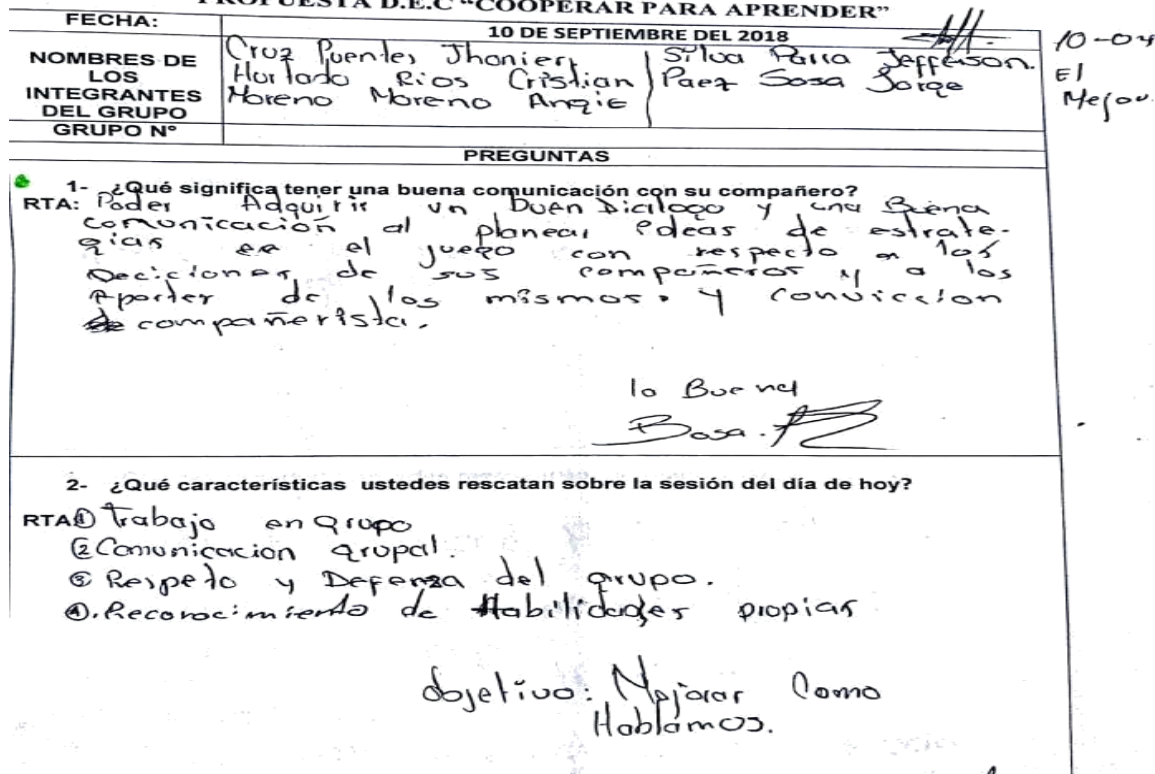 PROPUESTA D.E.C “COOPERAR PARA APRENDER”
FECHA: 10 DE SEPTIEMBRE DEL 2018
NOMBRES DE LOS INTEGRANTES DEL GRUPO
Cruz Puentes Jhonier
Hurtado Rios Cristian
Moreno Moreno Angie
Silva Parra Jefferson.
Paez Sosa Jorge
10-04
El
Mejor.
GRUPO N°
PREGUNTAS
1- ¿Qué significa tener una buena comunicación con su compañero?
RTA: Poder Adquirir un buen Dialogo y una Buena
comunicación al planear ideas de estrate-
gias en el juego con respecto a los
Deciciones de sus compañeros y a los
Aportes de los mismos. y conviccion
compañerista.
la Buena
Bosa.
2- ¿Qué características ustedes rescatan sobre la sesión del día de hoy?
RTA ① Trabajo en grupo
② Comunicacion grupal.
③ Respeto y Defenza del grupo.
④. Reconocimiento de Habilidades propias
objetivo: Mejorar Como
Hablamos.